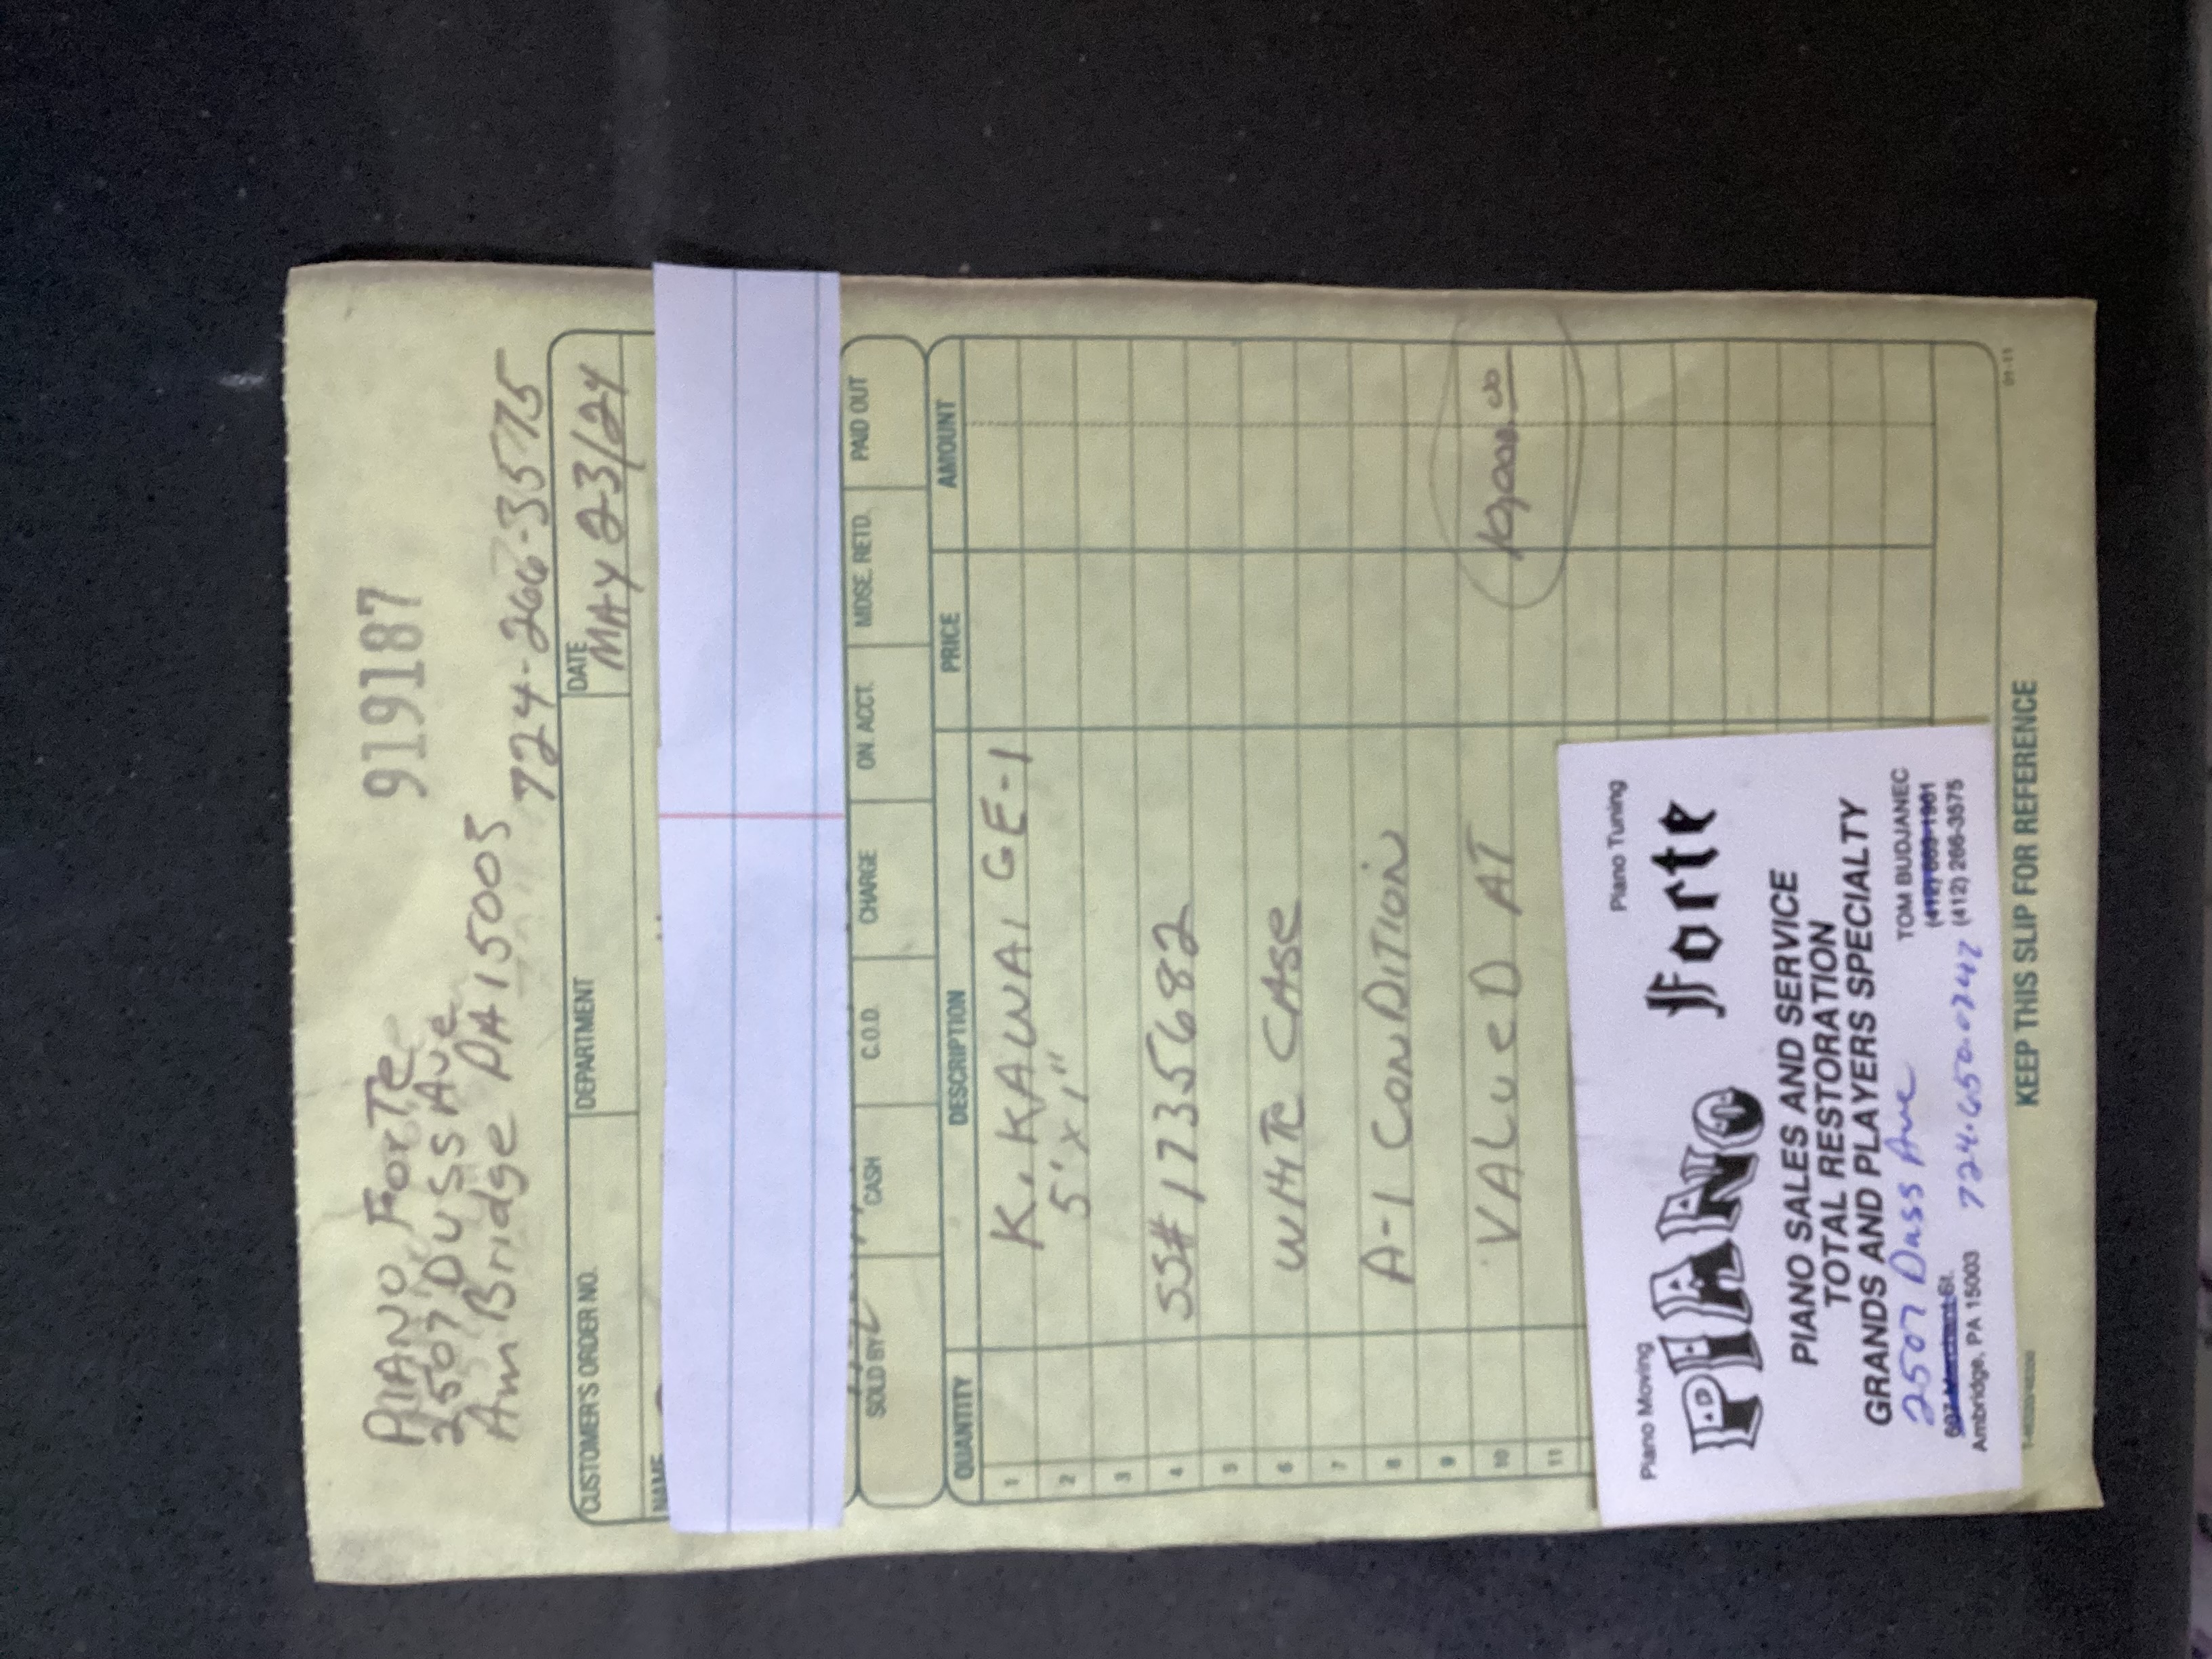 919187
PIANO ForTe
2507 DUSS Ave
AmBridge PA 15003
724-266-3575
CUSTOMER'S ORDER NO. DEPARTMENT DATE
MAY 23/24
NAME
SOLD BY CASH C.O.D. CHARGE ON ACCT. MDSE. RETD. PAID OUT
QUANTITY DESCRIPTION PRICE AMOUNT
1 K. KAWAI GE-1
2 5' x 1"
3
4 SS# 1735682
5
6 WHITe CASe
7
8 A-1 ConDiTion
9
10 VALueD AT
11
Piano Moving Piano Tuning
PIANO Forte
PIANO SALES AND SERVICE
TOTAL RESTORATION
GRANDS AND PLAYERS SPECIALTY
2507 Duss Ave
TOM BUDJANEC
607 Merchant St.
Ambridge, PA 15003
(412) 266-3575
724.650.0742
KEEP THIS SLIP FOR REFERENCE
01-11